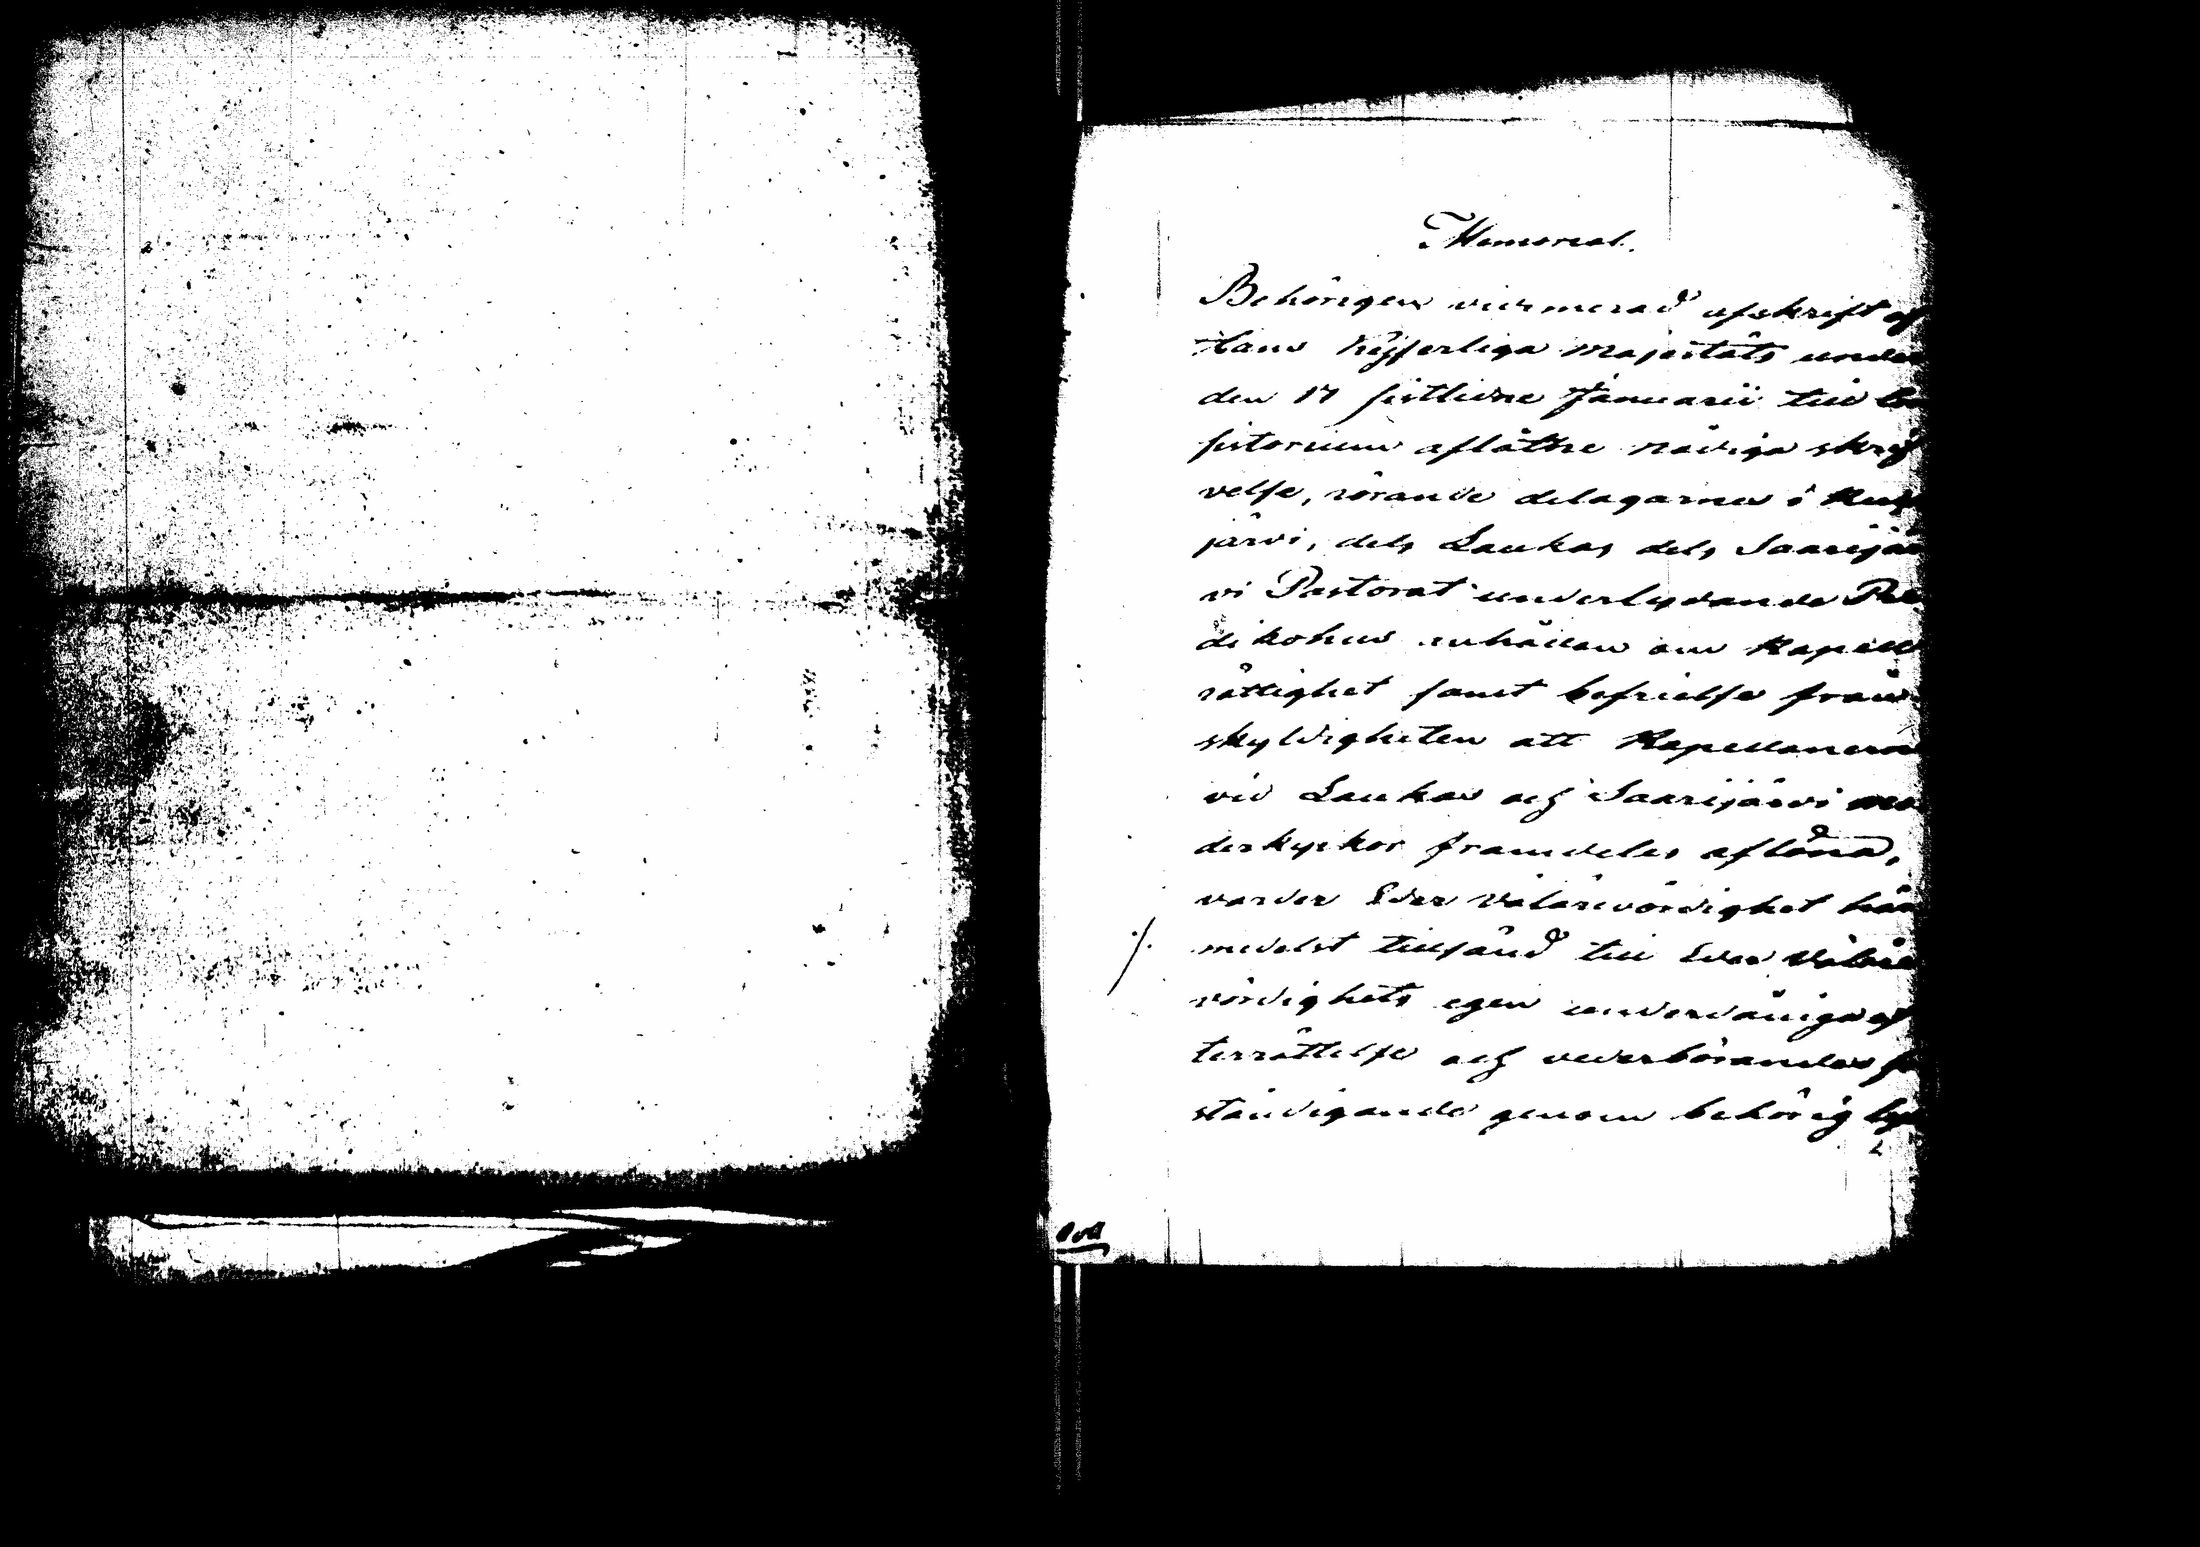 Memorial.
Behörigen vidimerad afskrift af
Hans Kejserliga Majestäts under
den 17 sistledne Januarii till Con
sistorium aflåtne nådiga skrif
velse, rörande delägarnes i
järvi, dels Laukas dels Saarijär
vi Pastorat underlydande Pre
dikohus anhållan om Kapell
rättighet samt befrielse från
skyldigheten att Kapellanerne
vid Laukas och Saarijärvi mo
derkyrkor framdeles aflöna,
varder Eder Välärevördighet här
medelst tillsänd till Eder Väläre
./. vördighets egen underdåniga ef
terrättelse och vederbörandes
ständigande genom behörig